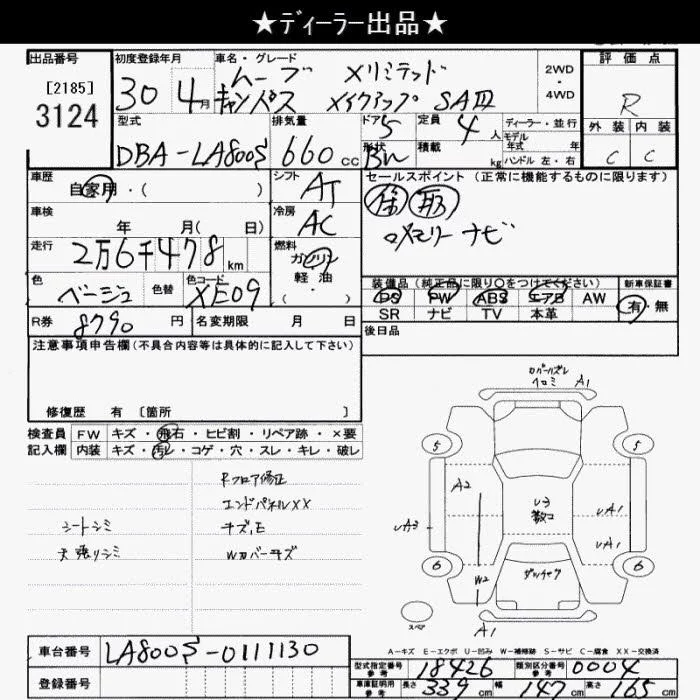 ★ディーラー出品★
出品番号
[2185]
3124
初度登録年月
30年 4月
車名・グレード
ムーブ Xリミテッド
キャンバス メイクアップ SAⅢ
2WD
・
4WD
評価点
R
外装 内装
C C
型式
DBA-LA800S
排気量
660 cc
ドア 5
形状 BN
定員 4 人
積載 kg
ディーラー・並行
モデル年式 年
ハンドル 左・右
車歴
自家用・( )
シフト
AT
セールスポイント (正常に機能するものに限ります)
保 取
メモリーナビ
車検
年 月( 日)
冷房
AC
走行
2万6千478 km
燃料
ガソリン
軽油
・
( )
色
ベージュ
色替
色コード
XE09
装備品(純正品に限り○をつけてください)
PS PW ABS エアB AW
SR ナビ TV 本革
新車保証書
有・無
R券 8790 円
名変期限 月 日
後日品
注意事項申告欄(不具合内容等は具体的に記入して下さい)
修復歴 有 〔箇所 〕
検査員記入欄
FW キズ・飛石・ヒビ割・リペア跡・×要
内装 キズ・汚レ・コゲ・穴・スレ・キレ・破レ
シートシミ
天張リシミ
Rフロア修正
エンドパネルXX
キズ,E
Wカバーキズ
A1
5 5
A2
UA3
W2
U3
数コ
UA1
UA1
6 6
スペア
A1
A-キズ E-エクボ U-凹み W-補修跡 S-サビ C-腐食 XX-交換済
車台番号 LA800S-0111130
登録番号
型式指定番号 参考 18426
類別区分番号 参考 0004
車庫証明用 参考 長さ 339 cm 幅 147 cm 高さ 165 cm